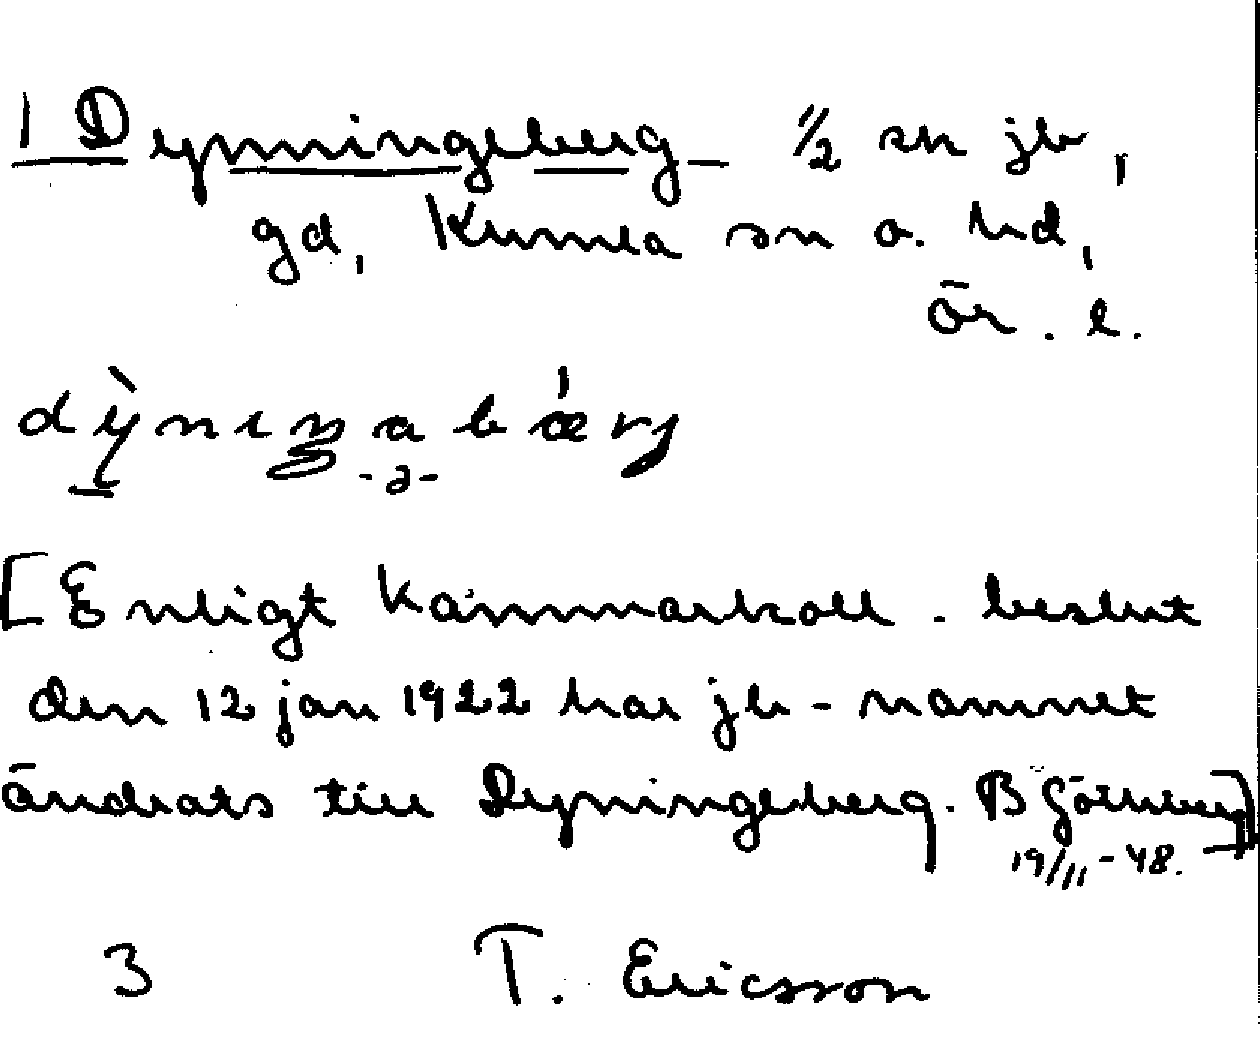 1 Dynningeberg 1/2 sn jb,
gd, Kumla sn o. hd,
ör. l.
-a-
[Enligt Kammarkoll. beslut
den 12 jan 1922 har jb-namnet
ändrats till Dyningeberg. B Göthberg]
19/11-48.
3 T. Ericsson